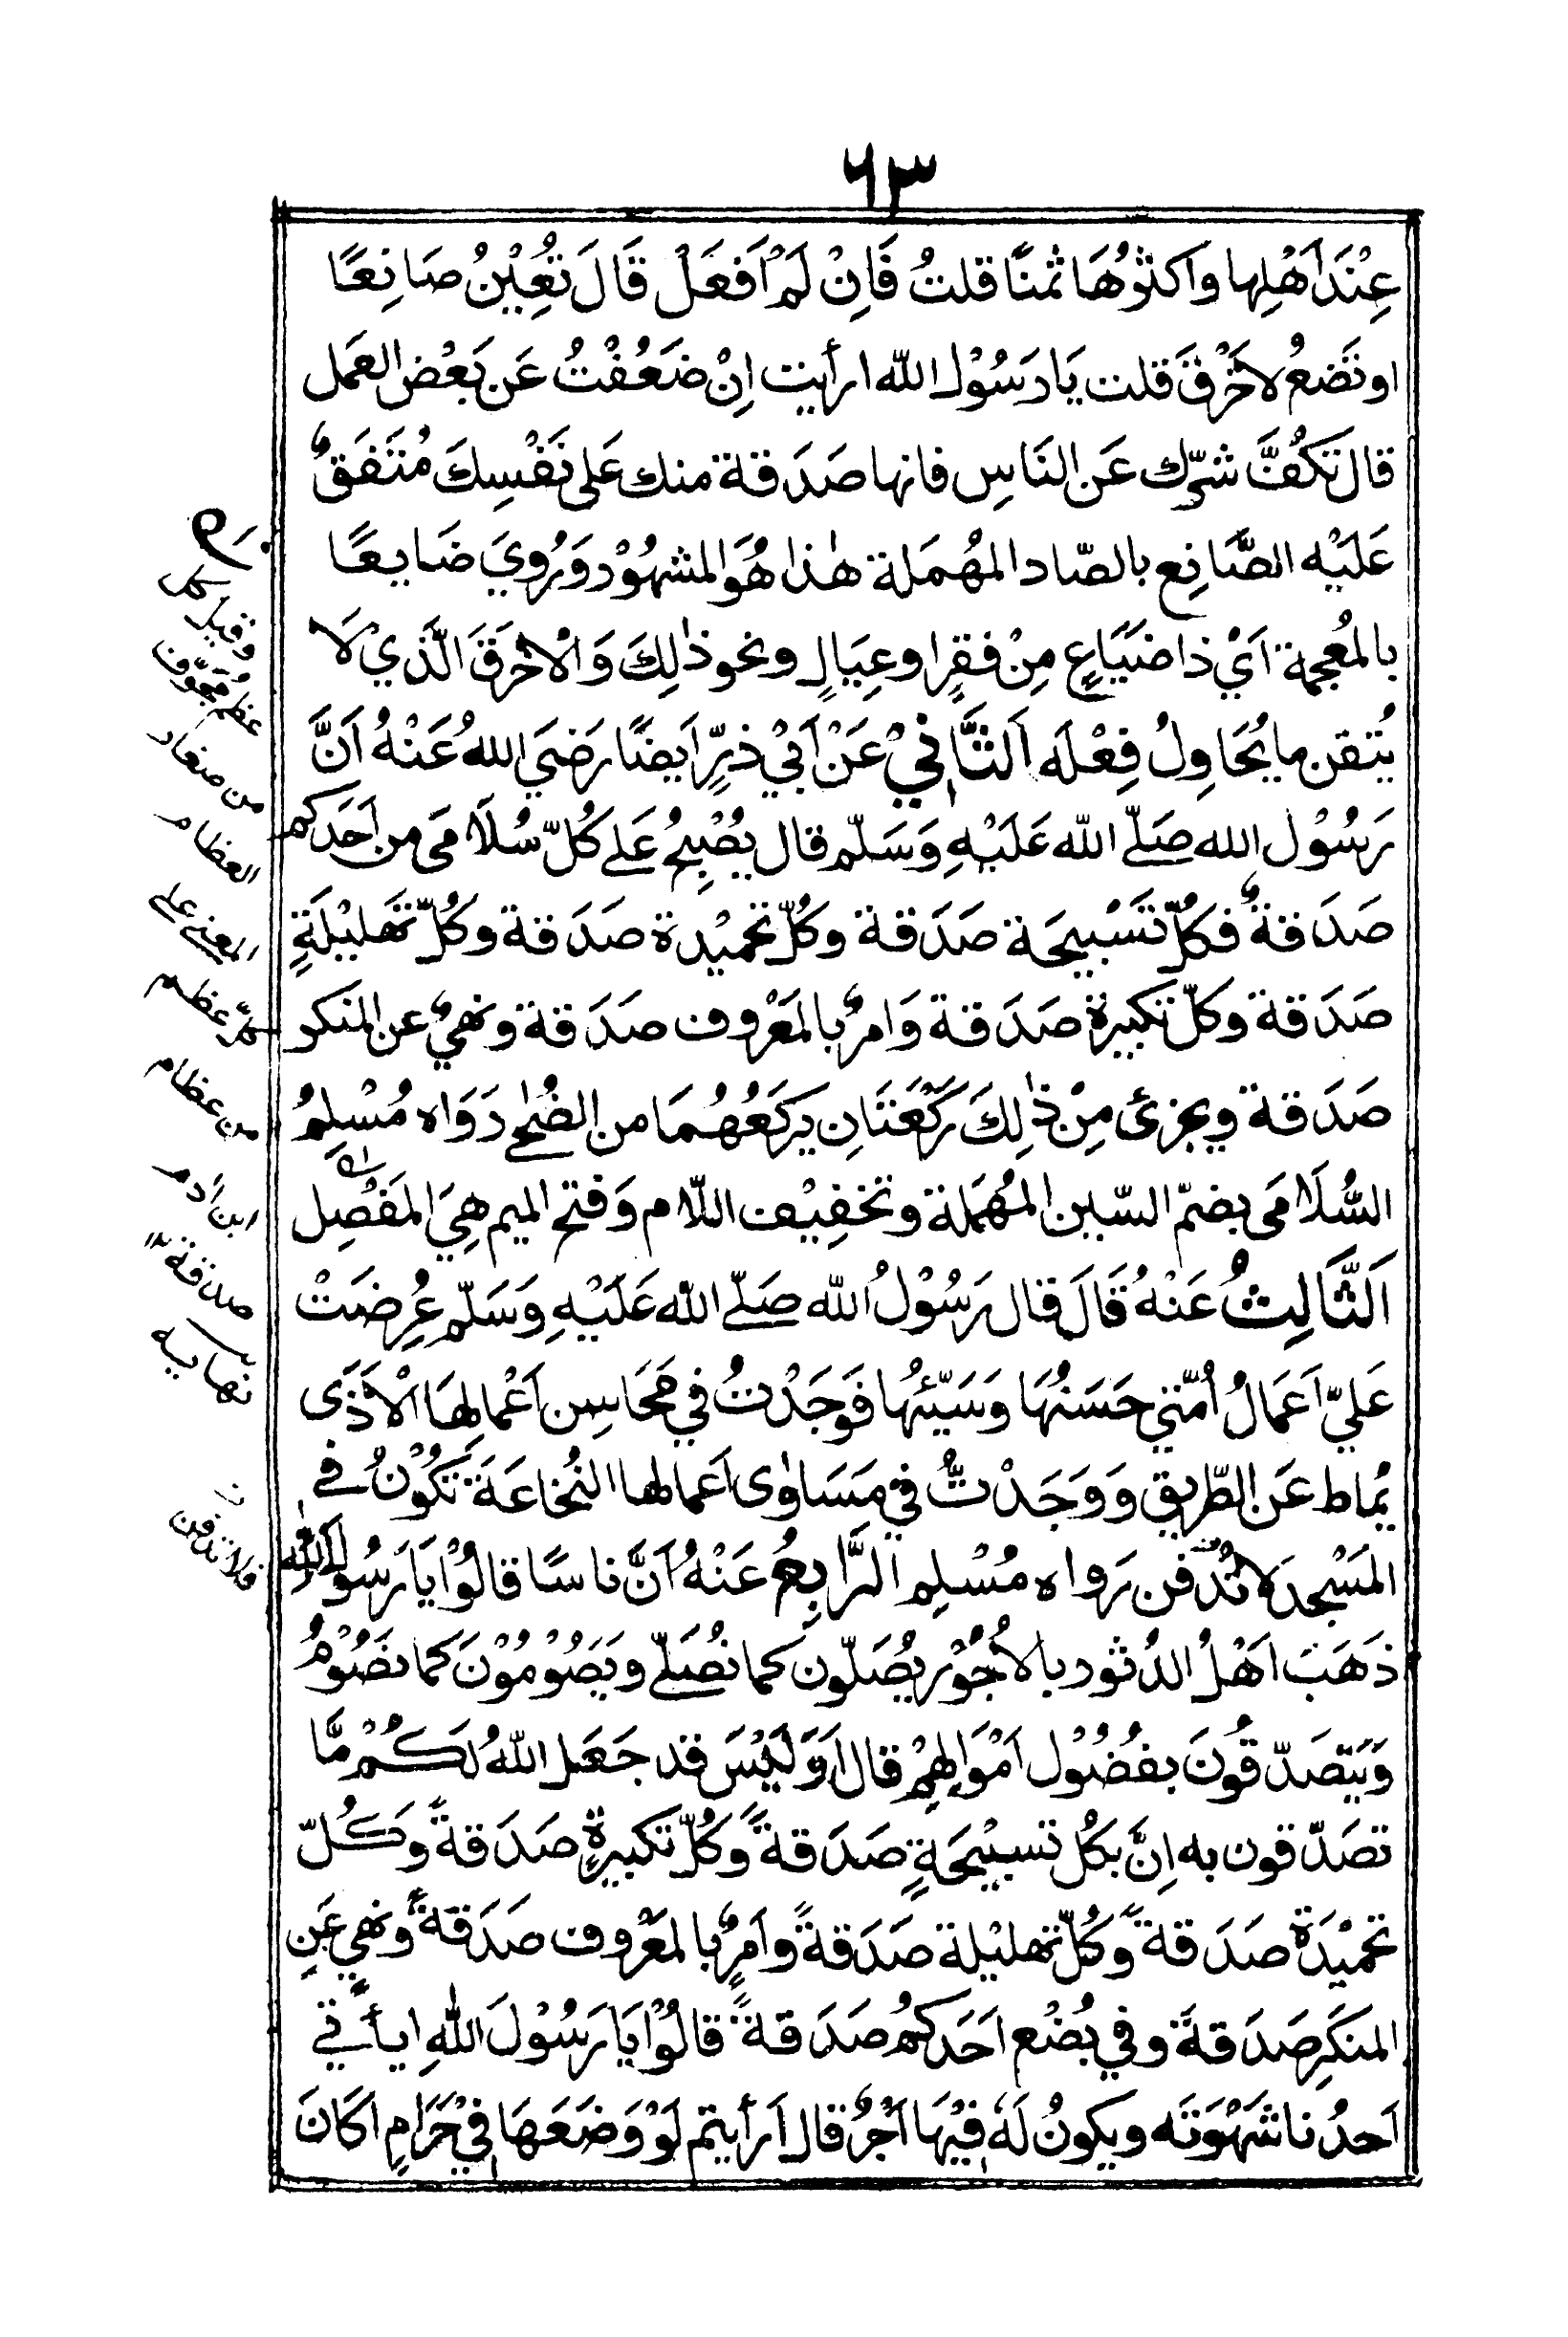 ٦٣
عِنْدَ اَهْلِها واَكثرُهَا ثمنًا قلتُ فَاِنْ لَمْ اَفعَلْ قَالَ تُعِيْنُ صَانِعًا
او تَصْنَعُ لاَخْرَقَ قلت يَا رَسُوْل الله ارأيت اِنْ ضَعُفْتُ عَن بَعْض العَمل
قال تَكُفَّ شرّك عَن النَاسِ فانها صَدَقة منك عَلى نَفْسِكَ مُتَفَقٌ
عَلَيْه الصَّانِع بالصّاد المهُمَلة هٰذا هُوَ المشهُوْر وَرُويَ ضَايعًا
بالمُعجمة اَيْ ذا ضَيَاعٍ مِنْ فقرٍ او عِيَالٍ ونحو ذٰلِكَ وَالْاخْرَقَ الَّذيْ لَا
يُتقن ما يُحَاوِلُ فِعْلَه اَلثَّانِيْ عَنْ اَبِيْ ذرٍّ اَيضًا رَضيَ اللهُ عَنْهُ اَنَّ
رَسُوْل الله صَلّى الله عَلَيْهِ وَسَلّم قال يُصْبِحُ عَلى كُلّ سُلَامَى من اَحَدكم
صَدَقةٌ فكلّ تَسْبيحَة صَدَقة وكلّ تحميْدة صَدَقة وكُلّ تَهليْلَةٍ
صَدَقة وكلّ تكبيرة صَدَقة وَامرٌ بالمَعْروف صَدَقة ونهيٌ عن المنكر
صَدَقة ويجزئ مِنْ ذٰلِكَ رَكْعَتَانِ يركَعُهُمَا من الضُحٰى رَوَاه مُسْلِمٌ
السُّلَامَى بضمّ السّين المُهمَلة وتخفِيْف اللّام وَفتح الميم هِيَ المَفْصِل
اَلثَّالِثُ عَنْهُ قَالَ قال رَسُوْلُ الله صَلّى الله عَلَيْهِ وَسَلّم عُرِضَتْ
عَليّ اَعمَالُ اُمّتي حَسَنُهَا وَسَيّئُها فَوَجَدْتُ في مَحَاسِن اَعْمالِهَا الْاَذَى
يُماط عَن الطّريق وَوَجَدْتُ في مَسَاوٰى اَعمالها النُخاعَةَ تَكُوْنُ في
المَسْجد لَا تُدْفن رَواه مُسْلِم الرَّابِعُ عَنْهُ اَنَّ ناسًا قالُوْا يَا رَسُولَ الله
ذَهَبَ اَهْلُ الدُثور بالاُجُوْر يُصَلّون كما نُصَلّي ويَصُوْمُوْنَ كَما نَصُوْمُ
وَيَتصَدّقُونَ بفُضُوْل اَمْوَالِهِمْ قال اَوَ لَيْسَ قد جَعَل اللهُ لَكُمْ مَّا
تصَدّقون به اِنَّ بكُل تسبيْحَةٍ صَدَقةً وكُلّ تكبيرةٍ صَدَقةً وَكُلّ
تحميْدَة صَدَقةً وكُلّ تهليْلة صَدَقةً واَمرٍ بالمَعْروف صَدَقةً ونهيٍ عَنِ
المنكَرِ صَدَقةً وفي بُضْع اَحَدكمُ صَدَقةً قالُوْا يَا رَسُوْلَ اللهِ ايأتي
اَحدُنا شَهْوَتَه ويكونُ لَهٗ فِيْهَا اَجْرٌ قال اَرأيتم لَوْ وَضَعَهَا فيْ حَرَامٍ اَكَانَ
وقيل كل
عظم مجوّف
من صغار
العظام
المعنى على
كلّ عظم
من عظام
ابن اٰدم
صدقة
نهايه
فلا تدفن